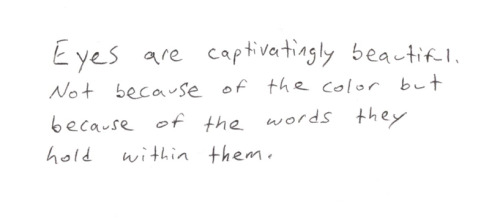 Eyes are captivatingly beautiful.
Not because of the color but
because of the words they
hold within them.